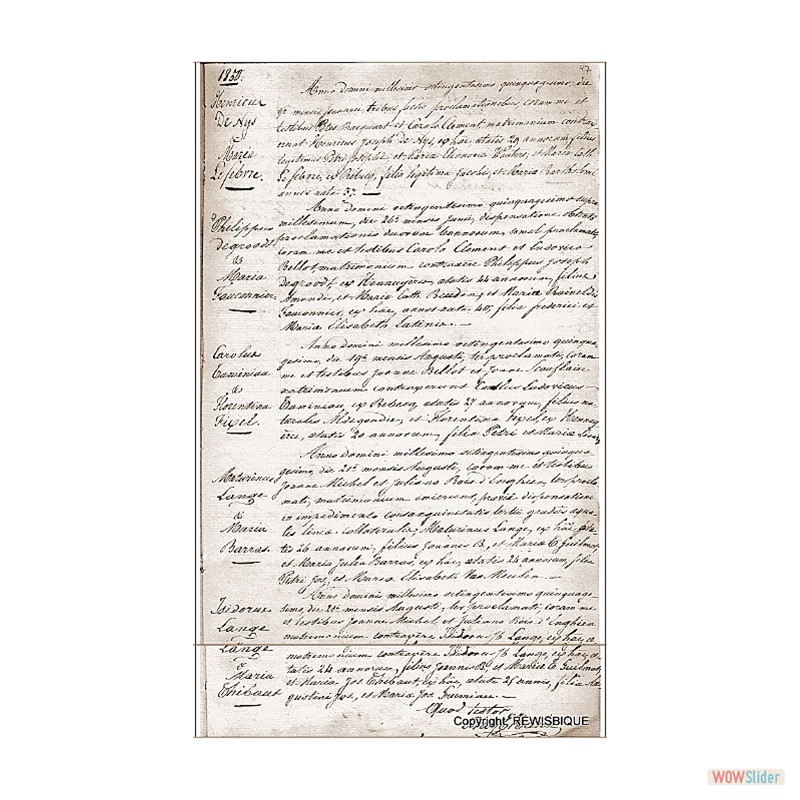 1850. 47
Henricus
De Nys
&
Maria
Lefebvre.
Anno domini millesimo octingentesimo quinquagesimo, die
mensis januarii, tribus factis proclamationibus coram me et
testibus Petro Bacquart et Carolo Clement matrimonium contrax-
erunt Henricus Joseph de Nys, ex hac, ætatis 29 annorum, filius
legitimus Petri Josephi, et Maria Elenora Wauters, et Maria Cath.
Lefebvre, ex Rebecq, filia legitima Jacobi, et Maria
annos nata 37. —
Philippus
Degroodt
&
Maria
Fauconnier
Anno domini octingentesimo quinquagesimo supra
millesimum, die 26a mensis Junii, dispensatione obtenta
proclamationis duorum bannorum, semel proclamati,
coram me et testibus Carolo Clement et Ludovico
Bellot, matrimonium contraxere Philippus joseph
degroodt, ex Hennuyères, ætatis 44 annorum, filius
Amandi, et Maria Cath. et Maria Raineldis
Fauconnier, ex hac, annos nata 40, filia frederici et
Maria Elisabeth Latinis. —
Carolus
Caminiau
&
Florentina
Fixel.
Anno domini millesimo octingentesimo quinqua-
gesimo, die 19a mensis Augusti, ter proclamati, coram
me et testibus joanne Bellot et Joanne Scouflaire
matrimonium contraxerunt Carolus Ludovicus
Caminiau, ex Rebecq, ætatis 27 annorum, filius na-
turalis Aldegondis, et Florentina Fixel, ex Hennuy-
ères, ætatis 20 annorum, filia Petri et Maria
Maturinus
Lange
&
Maria
Barras.
Anno domini millesimo octingentesimo quinqua-
gesimo, die 21a mensis Augusti, coram me et testibus
Joanne Michel et Juliano Bois d'Enghien, ter procla-
mati, matrimonium inierunt, prævia dispensatione
in impedimento consanguinitatis tertii gradus æqua-
lis lineæ collateralis; Maturinus Lange, ex hac, æta-
tis 26 annorum, filius Joannis B., et Maria C. Guilmot,
et Maria Julia Barras, ex hac, ætatis 24 annorum, filia
Petri jos, et Maria Elisabeth Van Meulen. —
Isidorus
Lange
Lange
&
Maria
Thibaut
Anno domini millesimo octingentesimo quinquage-
simo, die 21a mensis Augusti, ter proclamati, coram me
et testibus Joanne Michel, et juliano Bois d'Enghien
matrimonium contraxere Isidorus j/b Lange, ex hac, æ-
matrimonium contraxere Isidorus j/b Lange, ex hac, æ-
tatis 24 annorum, filius Joannis Bte et Maria C. Guilmot,
et Maria Jos Thibaut, ex hac, ætate 25 annis, filia Au-
gustini jos, et Maria jos
Quod testor
Copyright: REWISBIQUE
WOWSlider